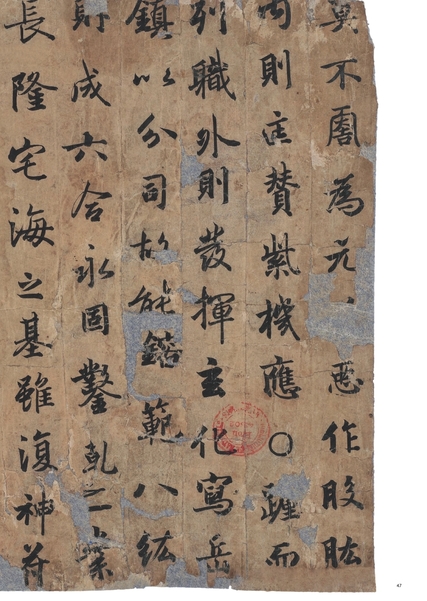 不為元、惡作股肱
内則匡賛紫機應〇躔而
列職外則發揮玄化寫岳
鎮以分司故能鎔範八紘
則成六合永固鑿乾之業
長隆宅海之基雖復神苻
43